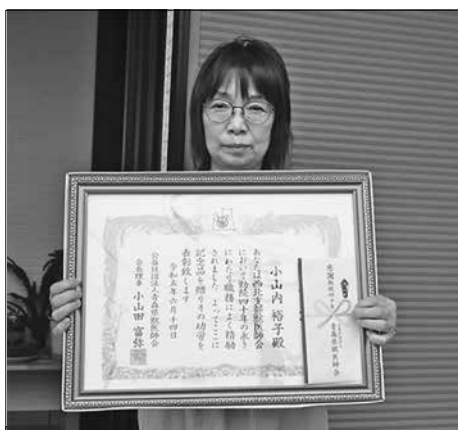 小山内 裕子殿
あなたは西北支部獣医師会
において勤続四十年の永き
にわたり職務によく精励
されました よってここに
記念品を贈りその功労を
表彰致します
令和五年六月十四日
公益社団法人青森県獣医師会
会長理事 小山田 富弥
青森県獣医師会